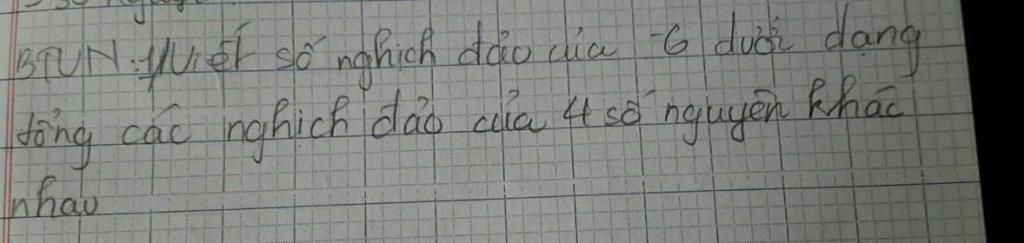 BTVN: 1, Viết số nghịch đảo của -6 dưới dạng
tổng các nghịch đảo của 4 số nguyên khác
nhau